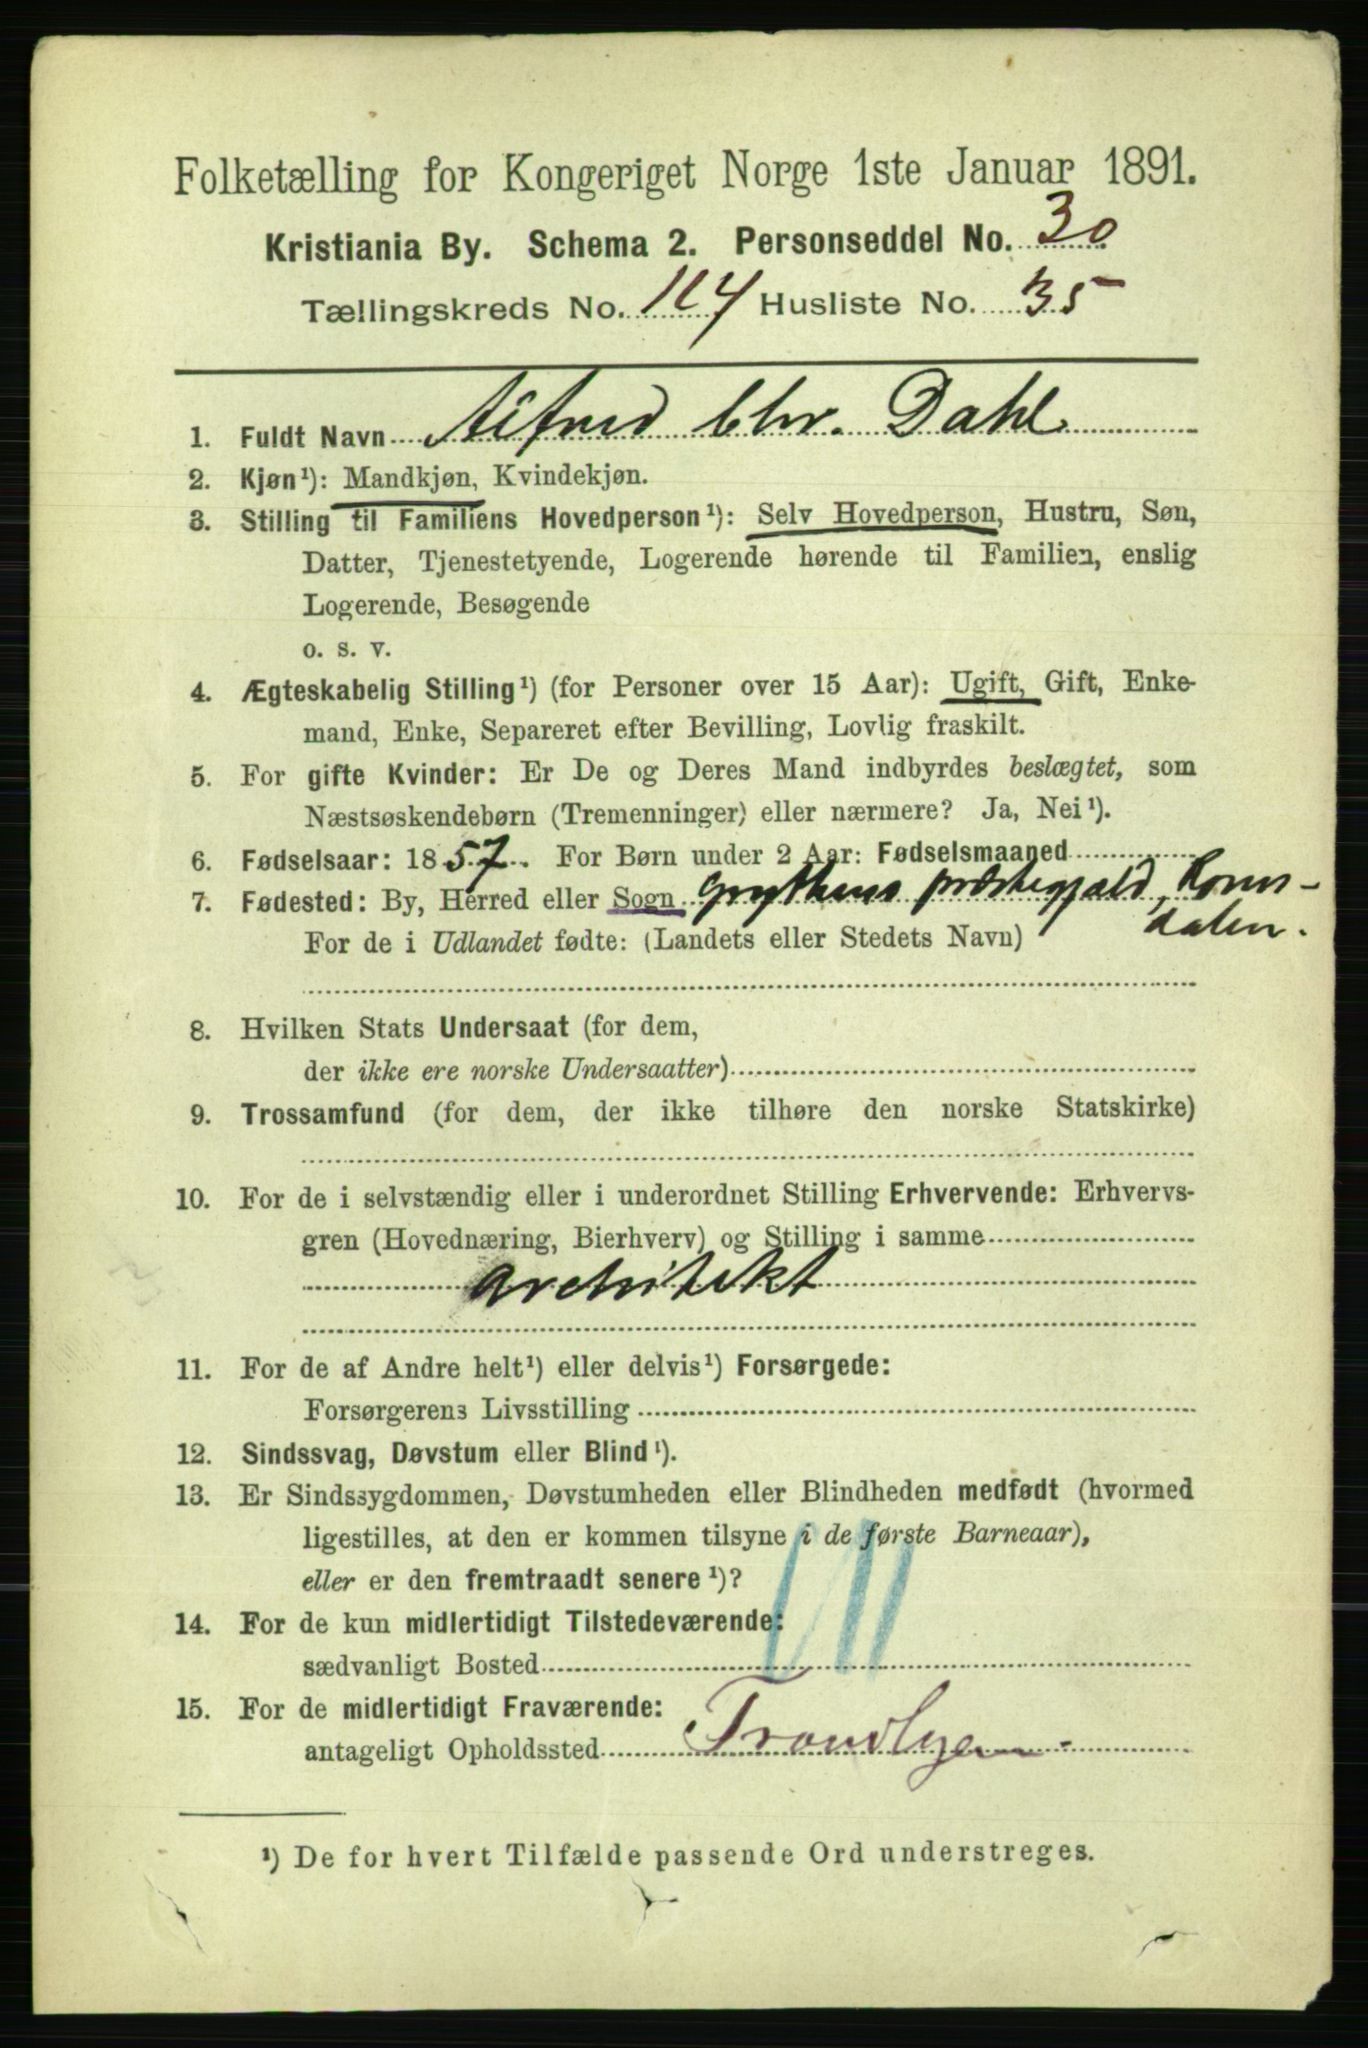 Folketælling for Kongeriget Norge 1ste Januar 1891.
Kristiania By. Schema 2. Personseddel No. 30
Tællingskreds No. 114 Husliste No. 35
1. Fuldt Navn Alfred Chr. Dahl
2. Kjøn¹): Mandkjøn, Kvindekjøn.
3. Stilling til Familiens Hovedperson¹): Selv Hovedperson, Hustru, Søn,
Datter, Tjenestetyende, Logerende hørende til Familien, enslig
Logerende, Besøgende
o. s. v.
4. Ægteskabelig Stilling¹) (for Personer over 15 Aar): Ugift, Gift, Enke-
mand, Enke, Separeret efter Bevilling, Lovlig fraskilt.
5. For gifte Kvinder: Er De og Deres Mand indbyrdes beslægtet, som
Næstsøskendebørn (Tremenninger) eller nærmere? Ja, Nei¹).
6. Fødselsaar: 1857. For Børn under 2 Aar: Fødselsmaaned
7. Fødested: By, Herred eller Sogn Grythens præstegjæld, Roms-
dalen.
For de i Udlandet fødte: (Landets eller Stedets Navn)
8. Hvilken Stats Undersaat (for dem,
der ikke ere norske Undersaatter)
9. Trossamfund (for dem, der ikke tilhøre den norske Statskirke)
10. For de i selvstændig eller i underordnet Stilling Erhvervende: Erhvervs-
gren (Hovednæring, Bierhverv) og Stilling i samme
architekt
11. For de af Andre helt¹) eller delvis¹) Forsørgede:
Forsørgerens Livsstilling
12. Sindssvag, Døvstum eller Blind¹).
13. Er Sindssygdommen, Døvstumheden eller Blindheden medfødt (hvormed
ligestilles, at den er kommen tilsyne i de første Barneaar),
eller er den fremtraadt senere¹)?
14. For de kun midlertidigt Tilstedeværende:
sædvanligt Bosted
15. For de midlertidigt Fraværende:
antageligt Opholdssted Trondhjem
¹) De for hvert Tilfælde passende Ord understreges.